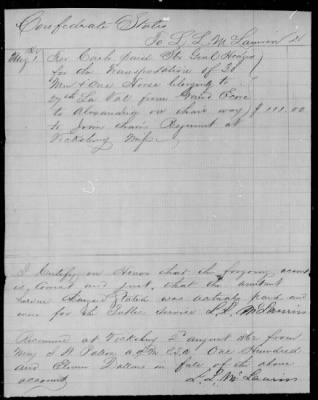 Confederate States
To L. L. McLaurin Dr
May 1. For Cash paid Str Genl Hodges
for the Transportation of 21
Men & One Horse belonging to
27th La Vol from Grand Ecore
to Alexandria on their way $111.00
to Join their Regiment at
Vicksburg Miss.
I Certify on Honor that the forgoing account
is Correct and Just, that the amount
therein Charged & Stated was actually paid and
were for the Public Service L. L. McLaurin
Received at Vicksburg August 1862 from
Maj A.Q.M. C.S.A. One Hundred
and Eleven Dollars in full of the above
account
L. L. McLaurin